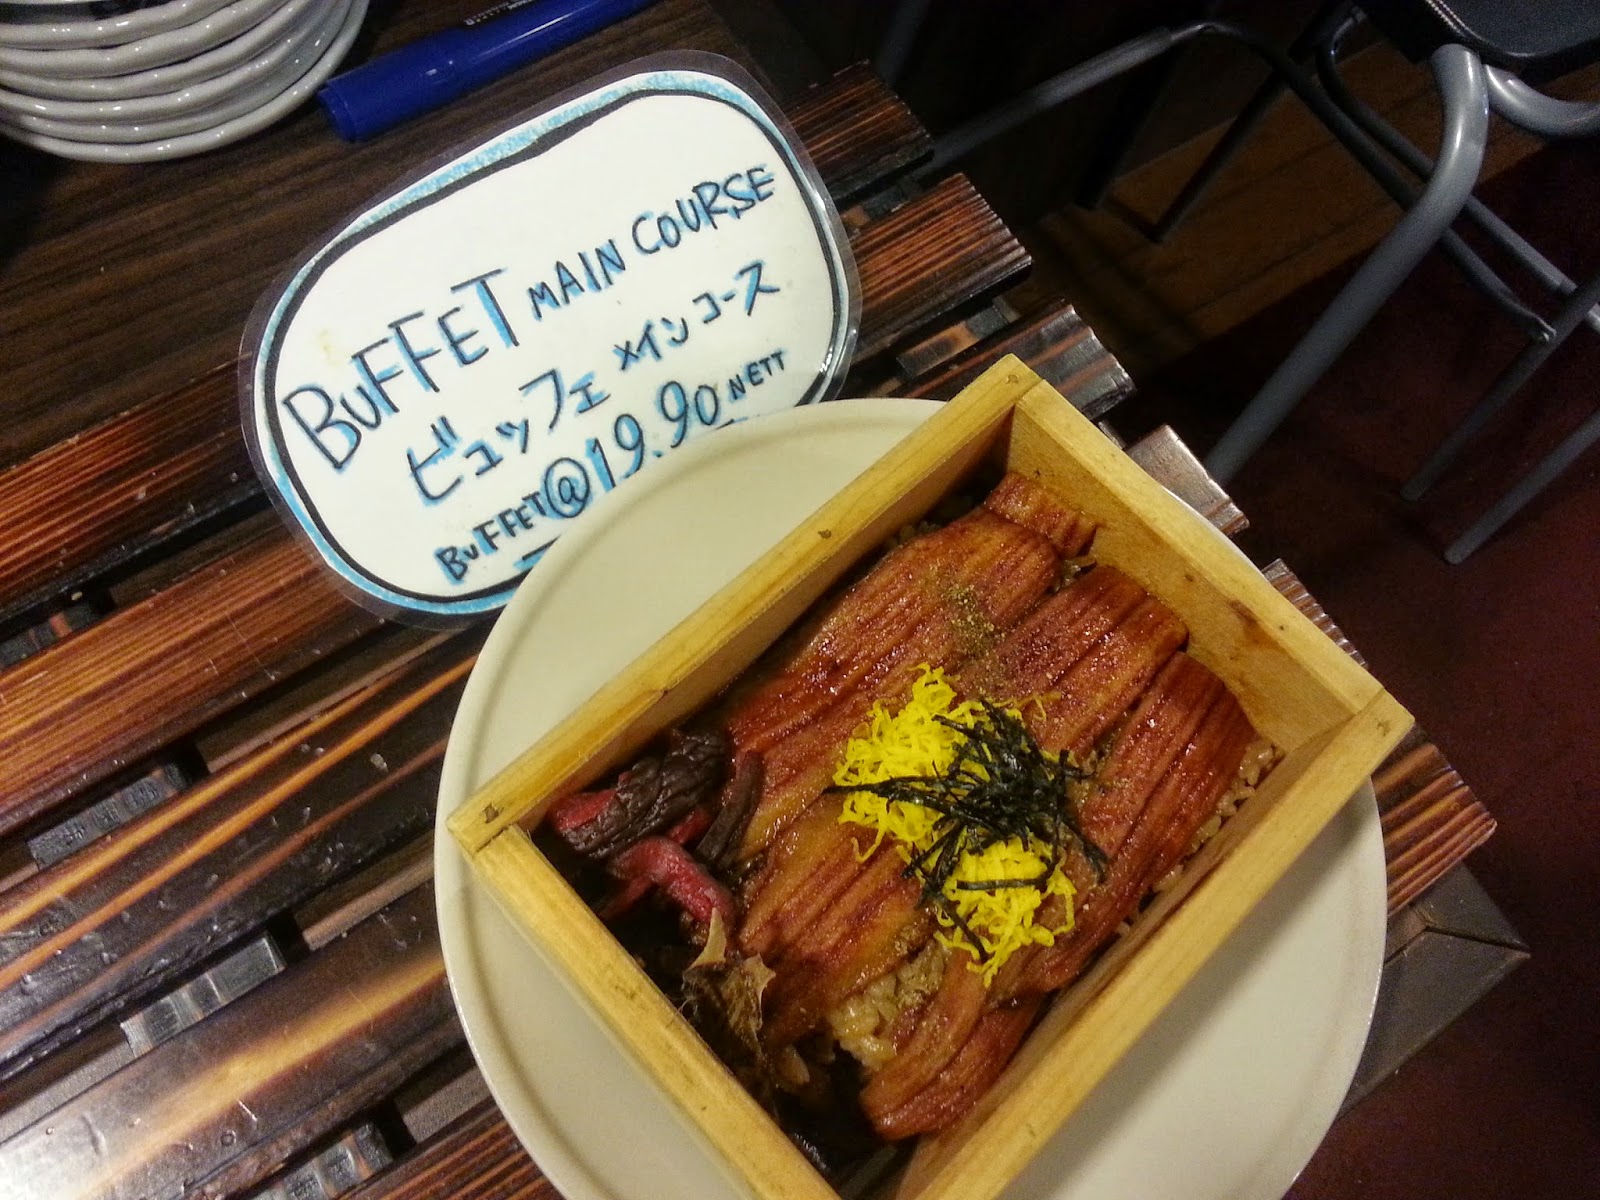 BUFFET MAIN COURSE
ビュッフェ メインコース
BUFFET @ 19.90 NETT